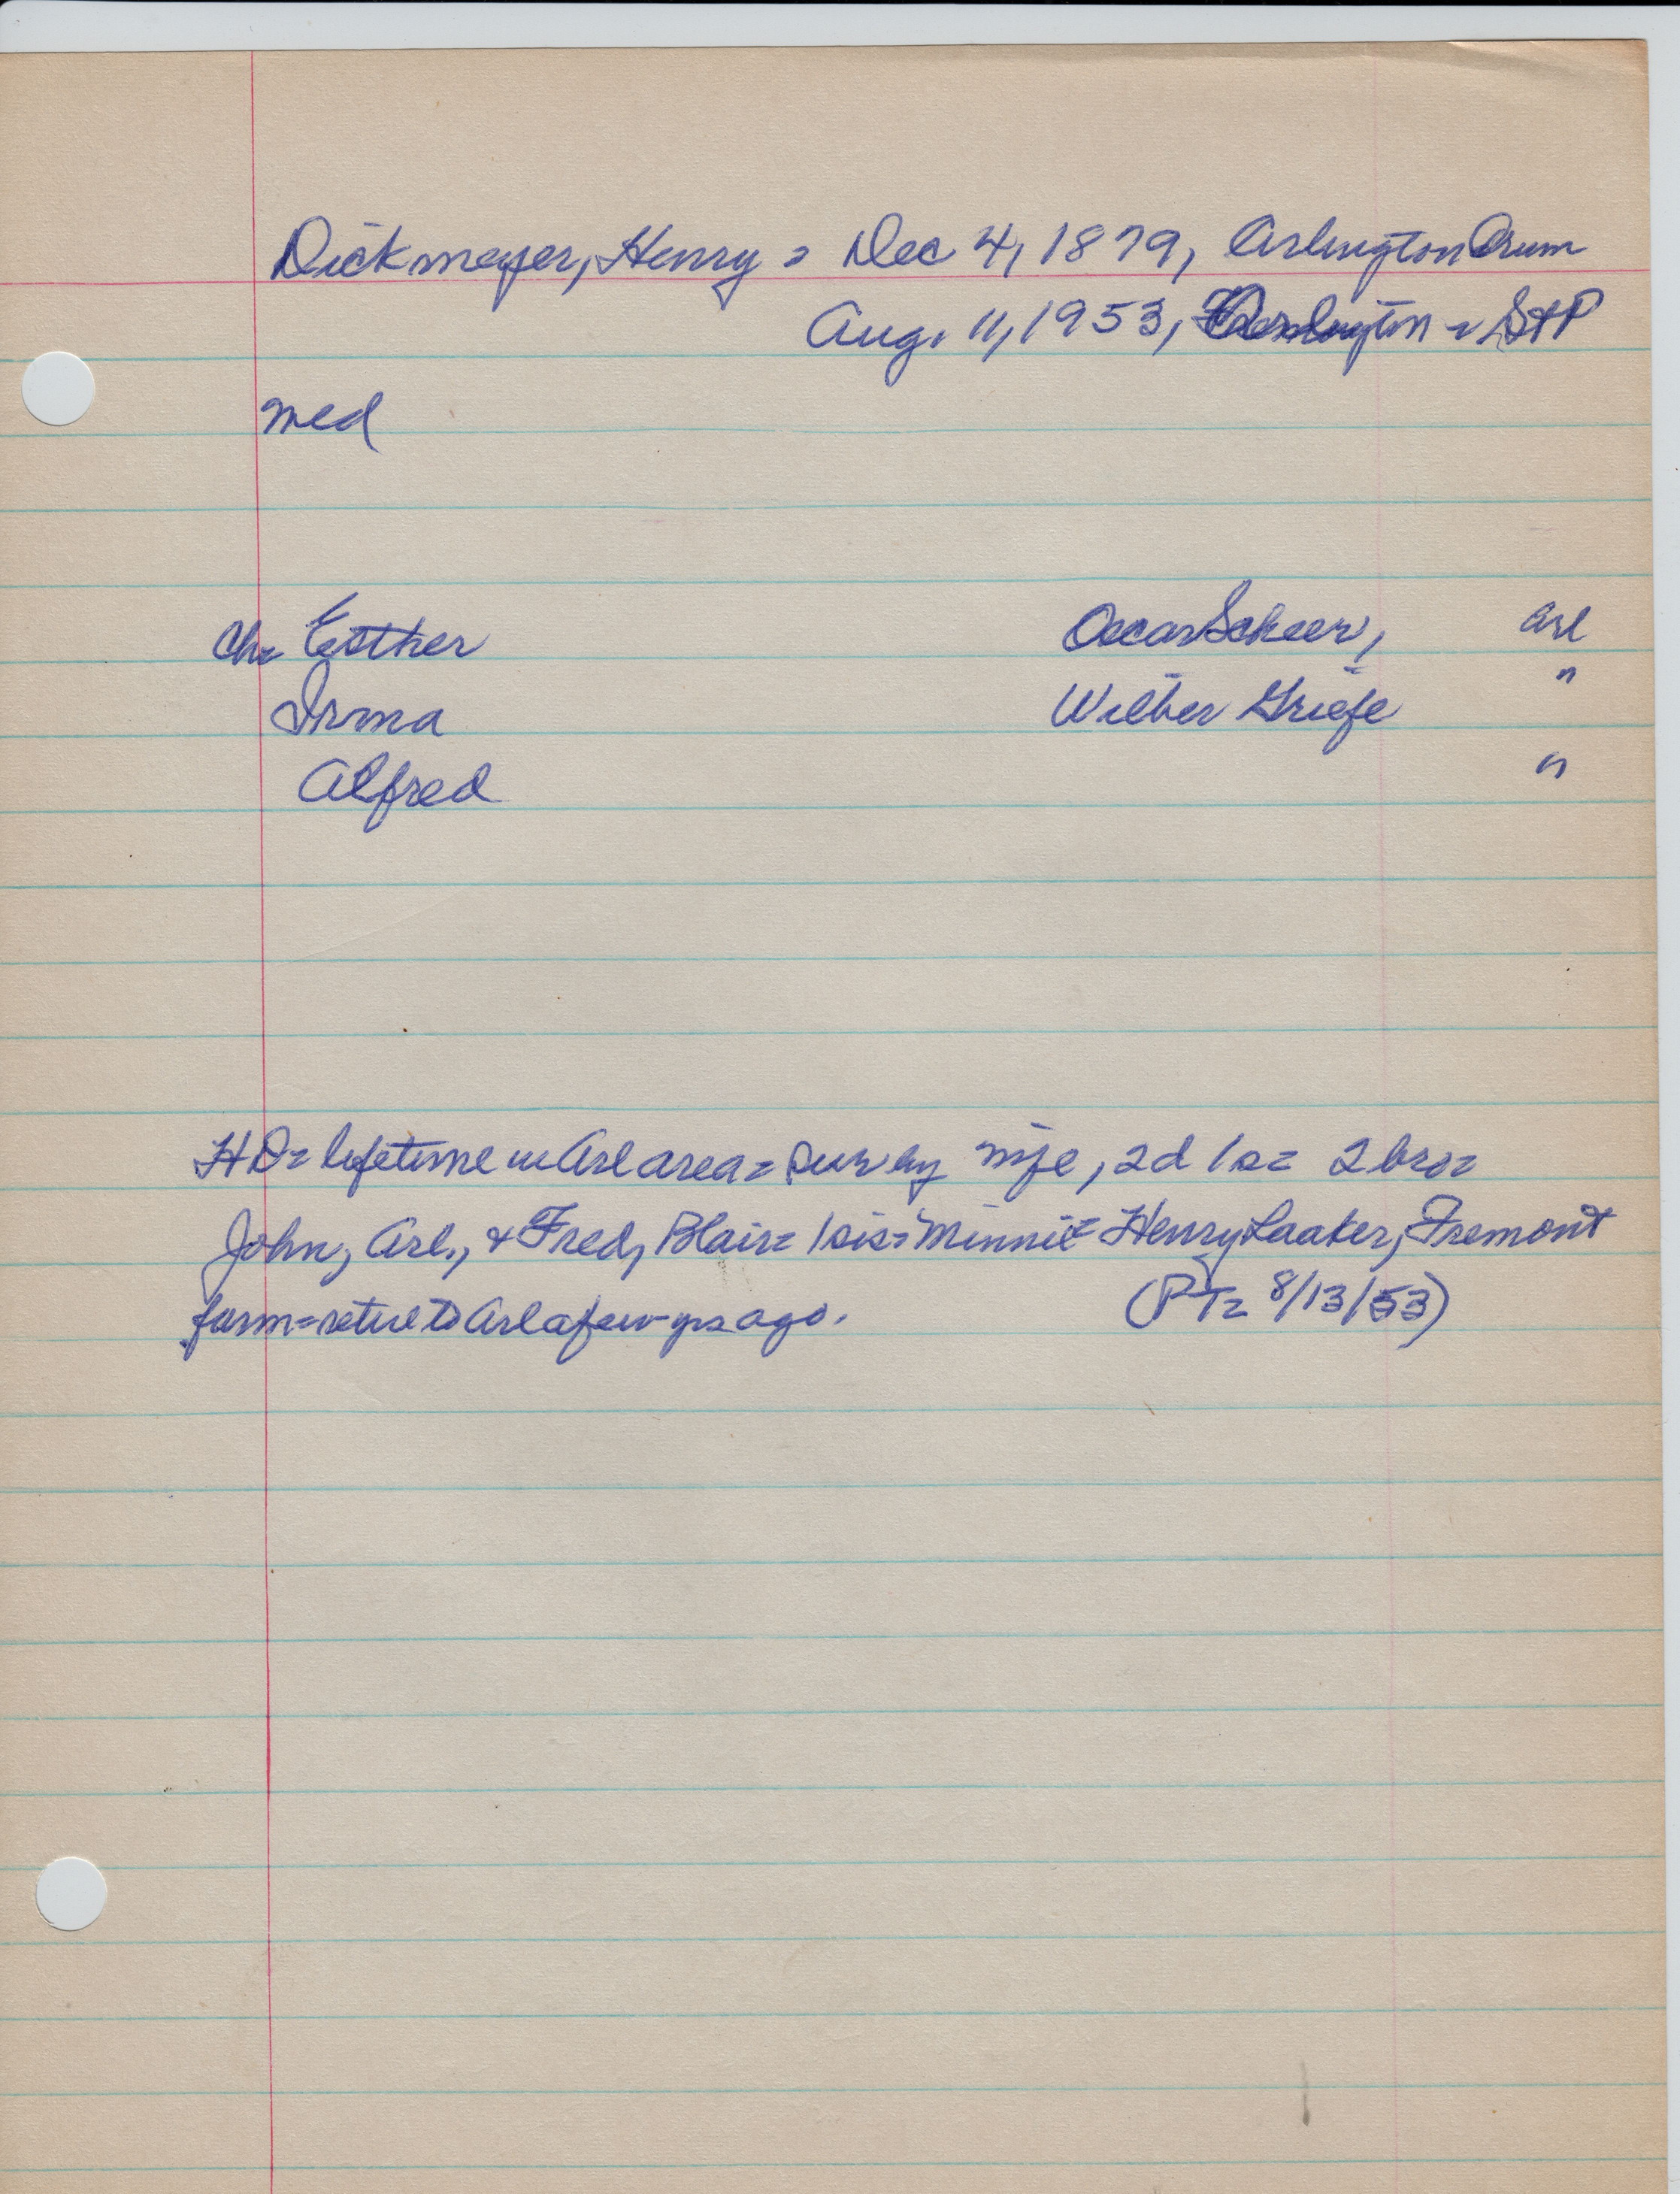 Dickmeyer, Henry = Dec 4, 1879, Arlington Orum
Aug. 11, 1953, Arlington = St P
med
Ch= Esther Oscar Scheer, Arl
Irma Wilber Griefe "
Alfred "
HD= lifetime in Arl area = sur by wife, 2d 1s= 2 bro=
John, Arl., & Fred, Blair= 1 sis= Minnie= Henry Laaker, Fremont
farm=retire to Arl a few yrs ago. (PT= 8/13/53)